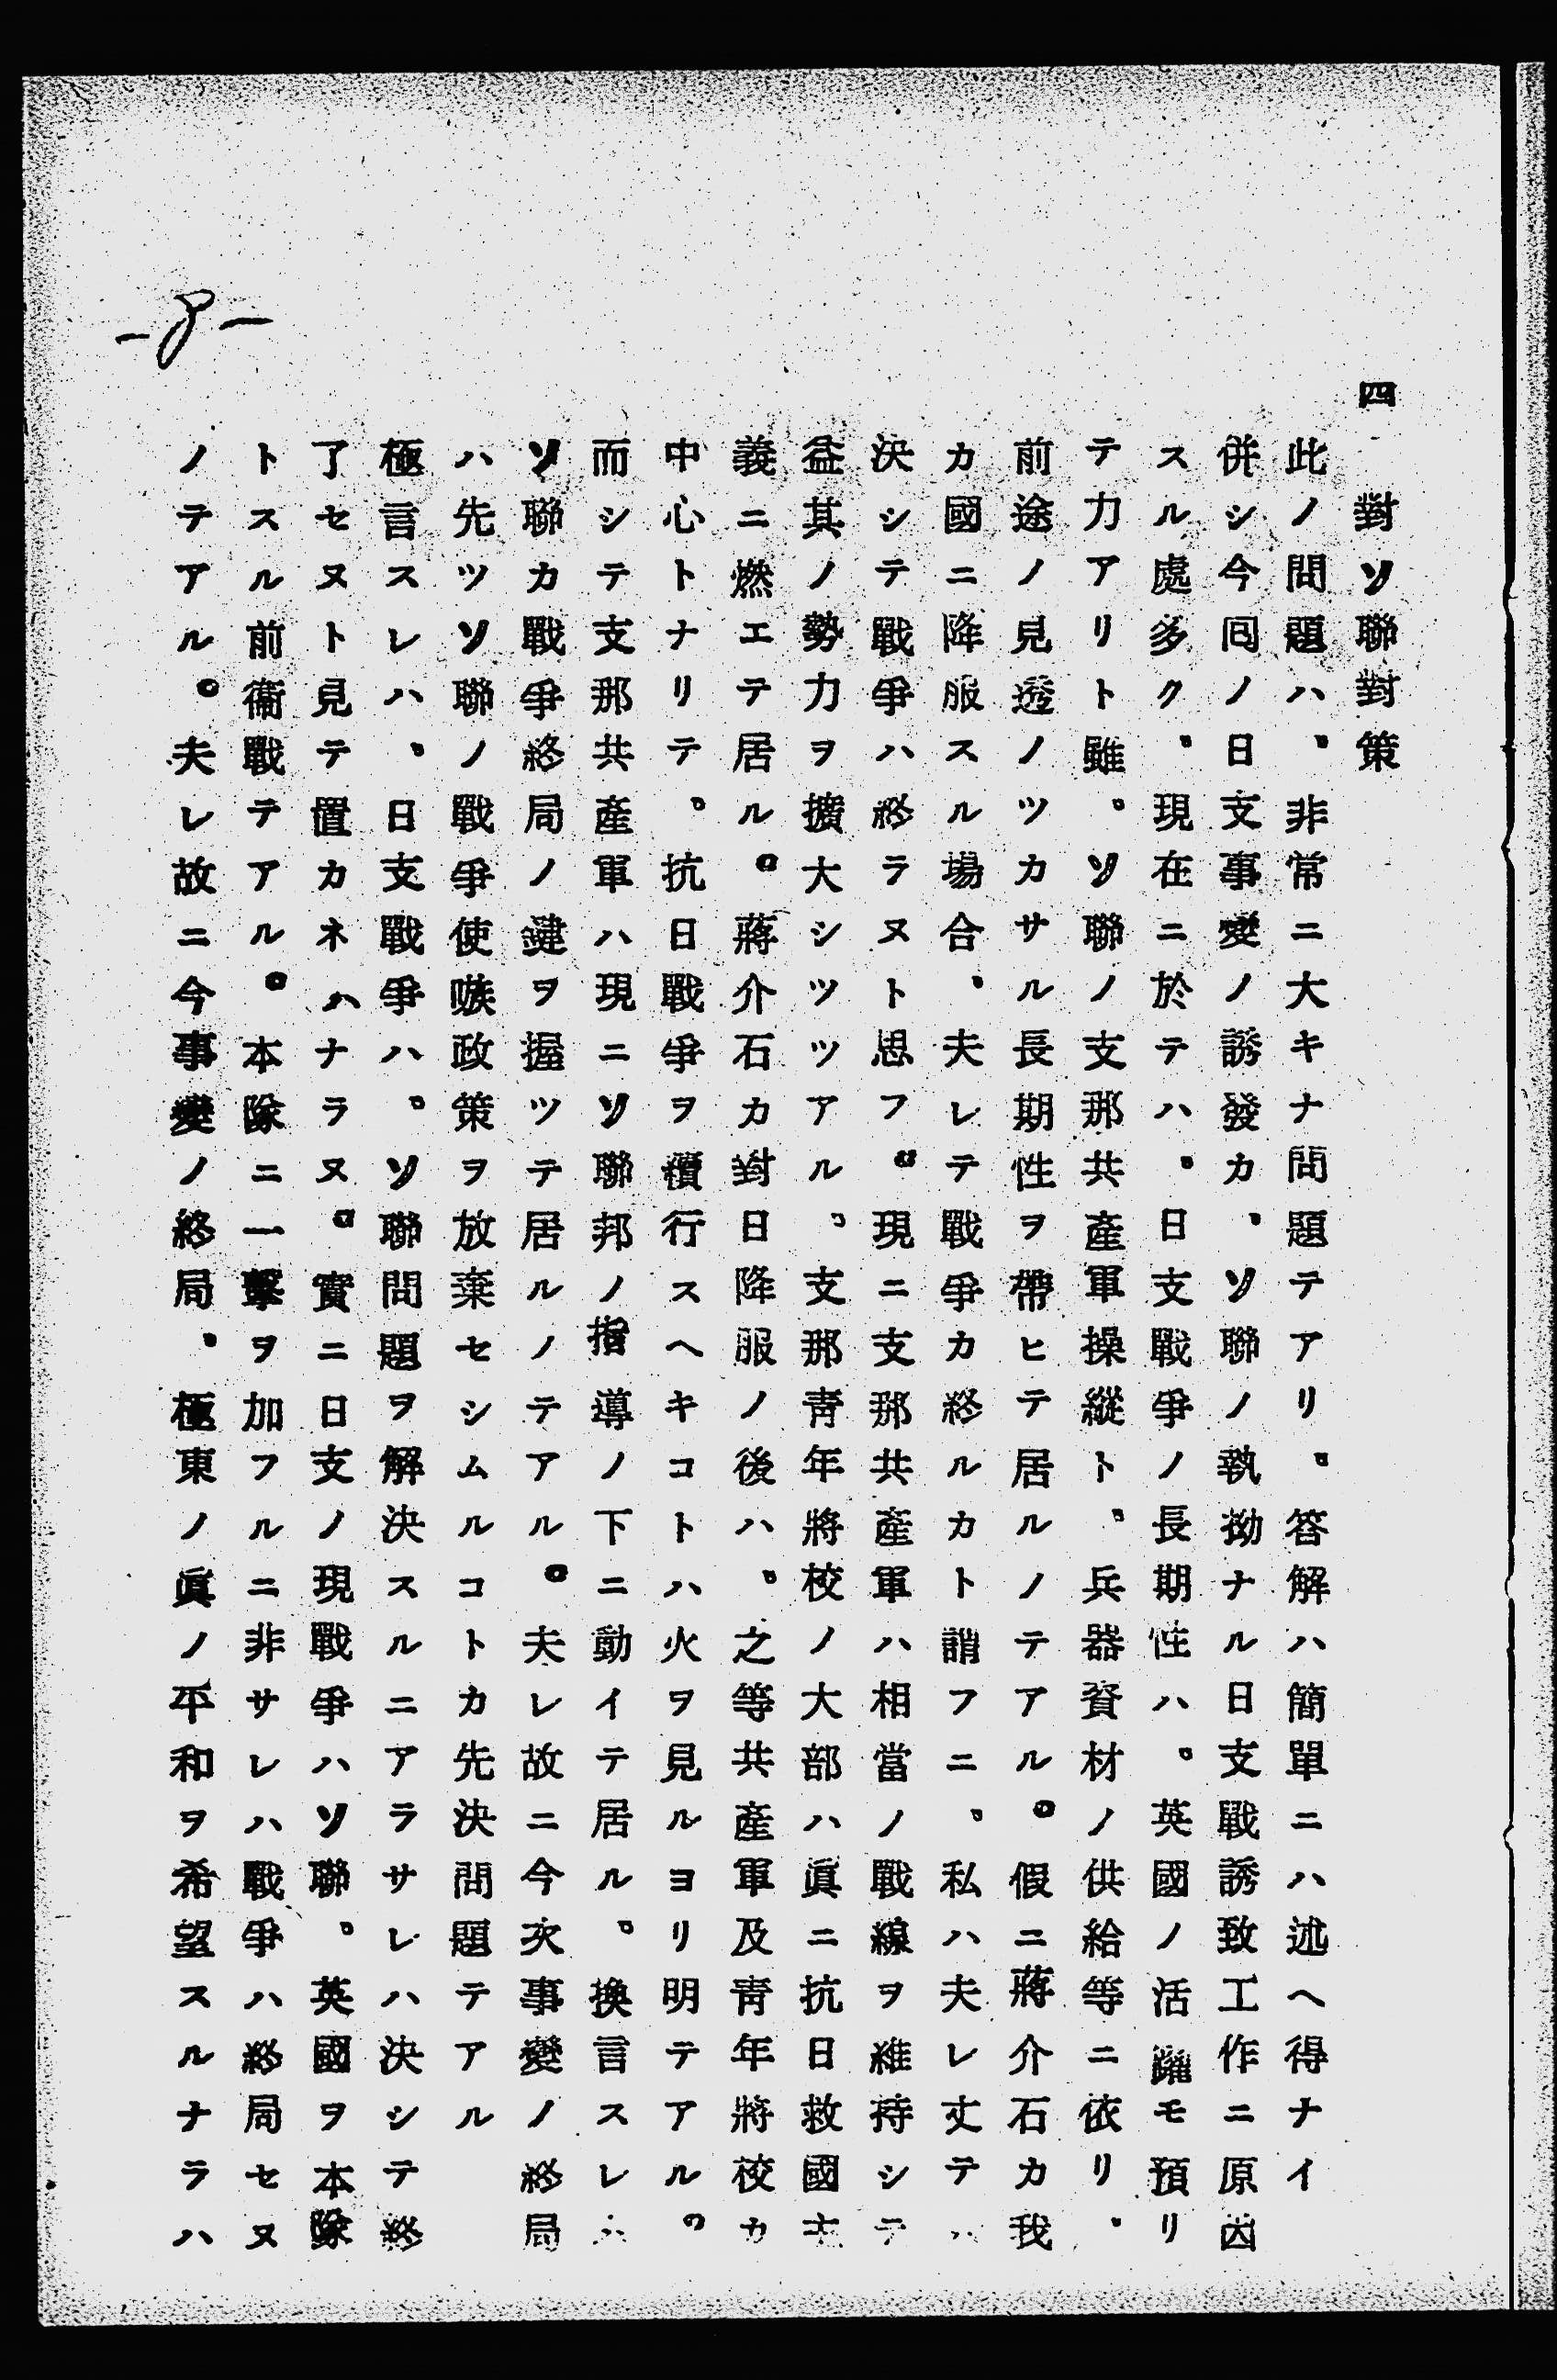 四 對ソ聯對策
此ノ問題ハ、非常ニ大キナ問題テアリ。答解ハ簡單ニハ述ヘ得ナイ
併シ今囘ノ日支事變ノ誘發カ、ソ聯ノ執拗ナル日支戰誘致工作ニ原因
スル處多ク、現在ニ於テハ、日支戰爭ノ長期性ハ。英國ノ活躍モ預リ
テ力アリト雖。ソ聯ノ支那共產軍操縱ト、兵器資材ノ供給等ニ依リ、
前途ノ見透ノツカサル長期性ヲ帶ヒテ居ルノテアル。假ニ蔣介石カ我
カ國ニ降服スル場合、夫レテ戰爭カ終ルカト謂フニ、私ハ夫レ丈テハ
決シテ戰爭ハ終ラヌト思フ。現ニ支那共產軍ハ相當ノ戰線ヲ維持シテ
益其ノ勢力ヲ擴大シツツアル、支那靑年將校ノ大部ハ眞ニ抗日救國主
義ニ燃エテ居ル。蔣介石カ對日降服ノ後ハ、之等共產軍及靑年將校カ
中心トナリテ、抗日戰爭ヲ續行スヘキコトハ火ヲ見ルヨリ明テアル。
而シテ支那共產軍ハ現ニソ聯邦ノ指導ノ下ニ動イテ居ル。換言スレハ
ソ聯カ戰爭終局ノ鍵ヲ握ツテ居ルノテアル。夫レ故ニ今次事變ノ終局
ハ先ツソ聯ノ戰爭使嗾政策ヲ放棄セシムルコトカ先決問題テアル
極言スレハ、日支戰爭ハ。ソ聯問題ヲ解決スルニアラサレハ決シテ終
了セヌト見テ置カネハナラヌ。實ニ日支ノ現戰爭ハソ聯。英國ヲ本隊
トスル前衞戰テアル。本隊ニ一擊ヲ加フルニ非サレハ戰爭ハ終局セヌ
ノテアル。夫レ故ニ今事變ノ終局、極東ノ眞ノ平和ヲ希望スルナラハ
-8-